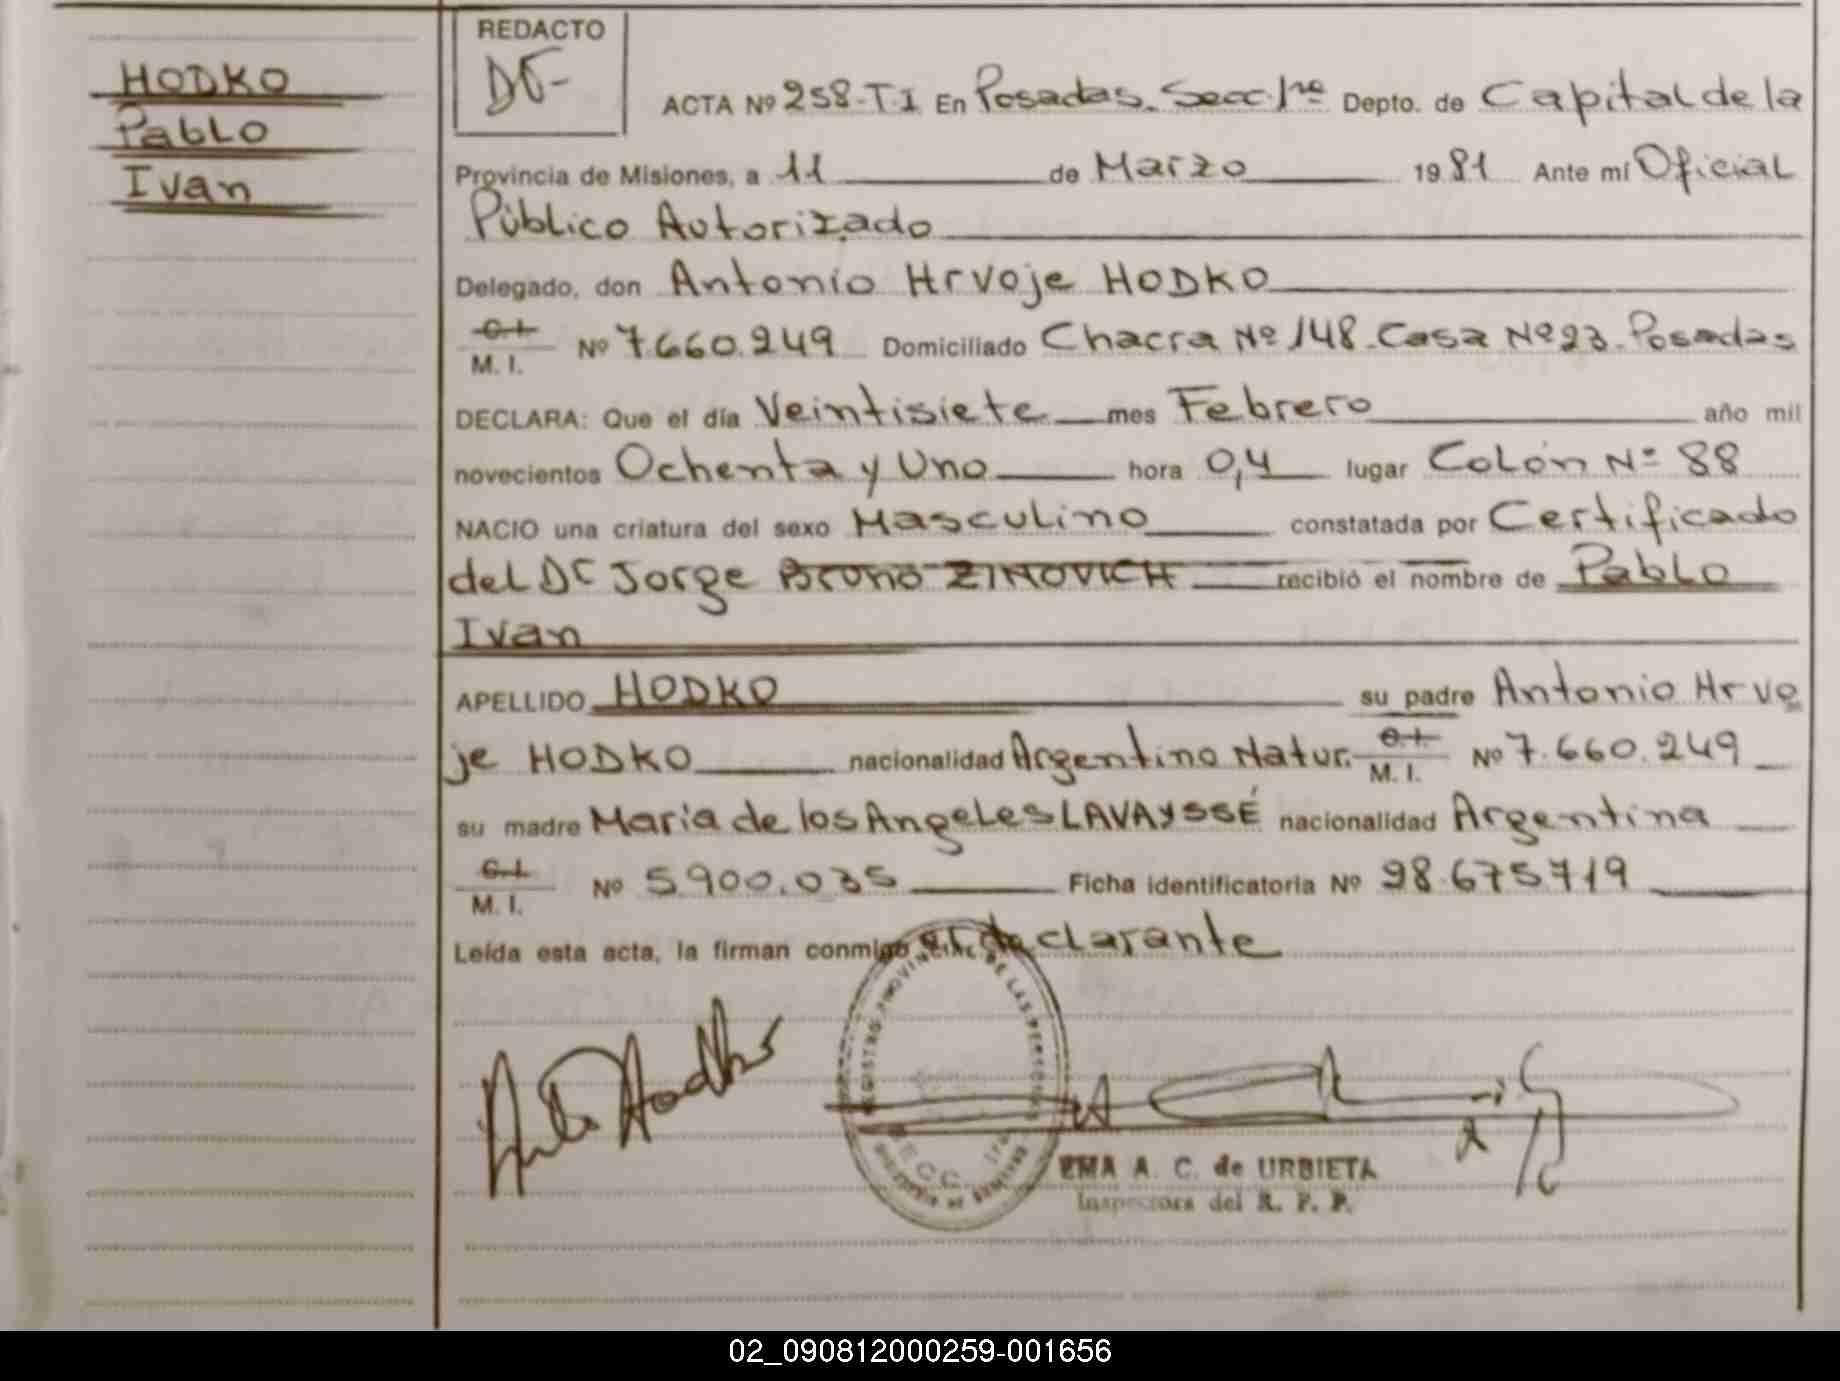 HODKO
Pablo
Ivan
REDACTO
ACTA Nº 258-T.I En Posadas. Secc. 1ra Depto. de Capital de la
Provincia de Misiones, a 11 de Marzo 1981 Ante mí Oficial
Público Autorizado
Delegado, don Antonio Hrvoje HODKO
C.I.
M. I. Nº 7.660.249 Domiciliado Chacra Nº 148-Casa Nº 23-Posadas
DECLARA: Que el día Veintisiete mes Febrero año mil
novecientos Ochenta y Uno hora 0,4 lugar Colón Nº 88
NACIO una criatura del sexo Masculino constatada por Certificado
del Dr Jorge Bruno ZINOVICH recibió el nombre de Pablo
Ivan
APELLIDO HODKO su padre Antonio Hrvo
je HODKO nacionalidad Argentino Natur. C.I. M. I. Nº 7.660.249
su madre Maria de los Angeles LAVAYSSÉ nacionalidad Argentina
C.I.
M. I. Nº 5.900.035 Ficha identificatoria Nº 98.675719
Leída esta acta, la firman conmigo el declarante
REGISTRO PROVINCIAL DE LAS PERSONAS
SECC. 1ra
EMA A. C. de URBIETA
Inspectora del R. P. P.
02_090812000259-001656